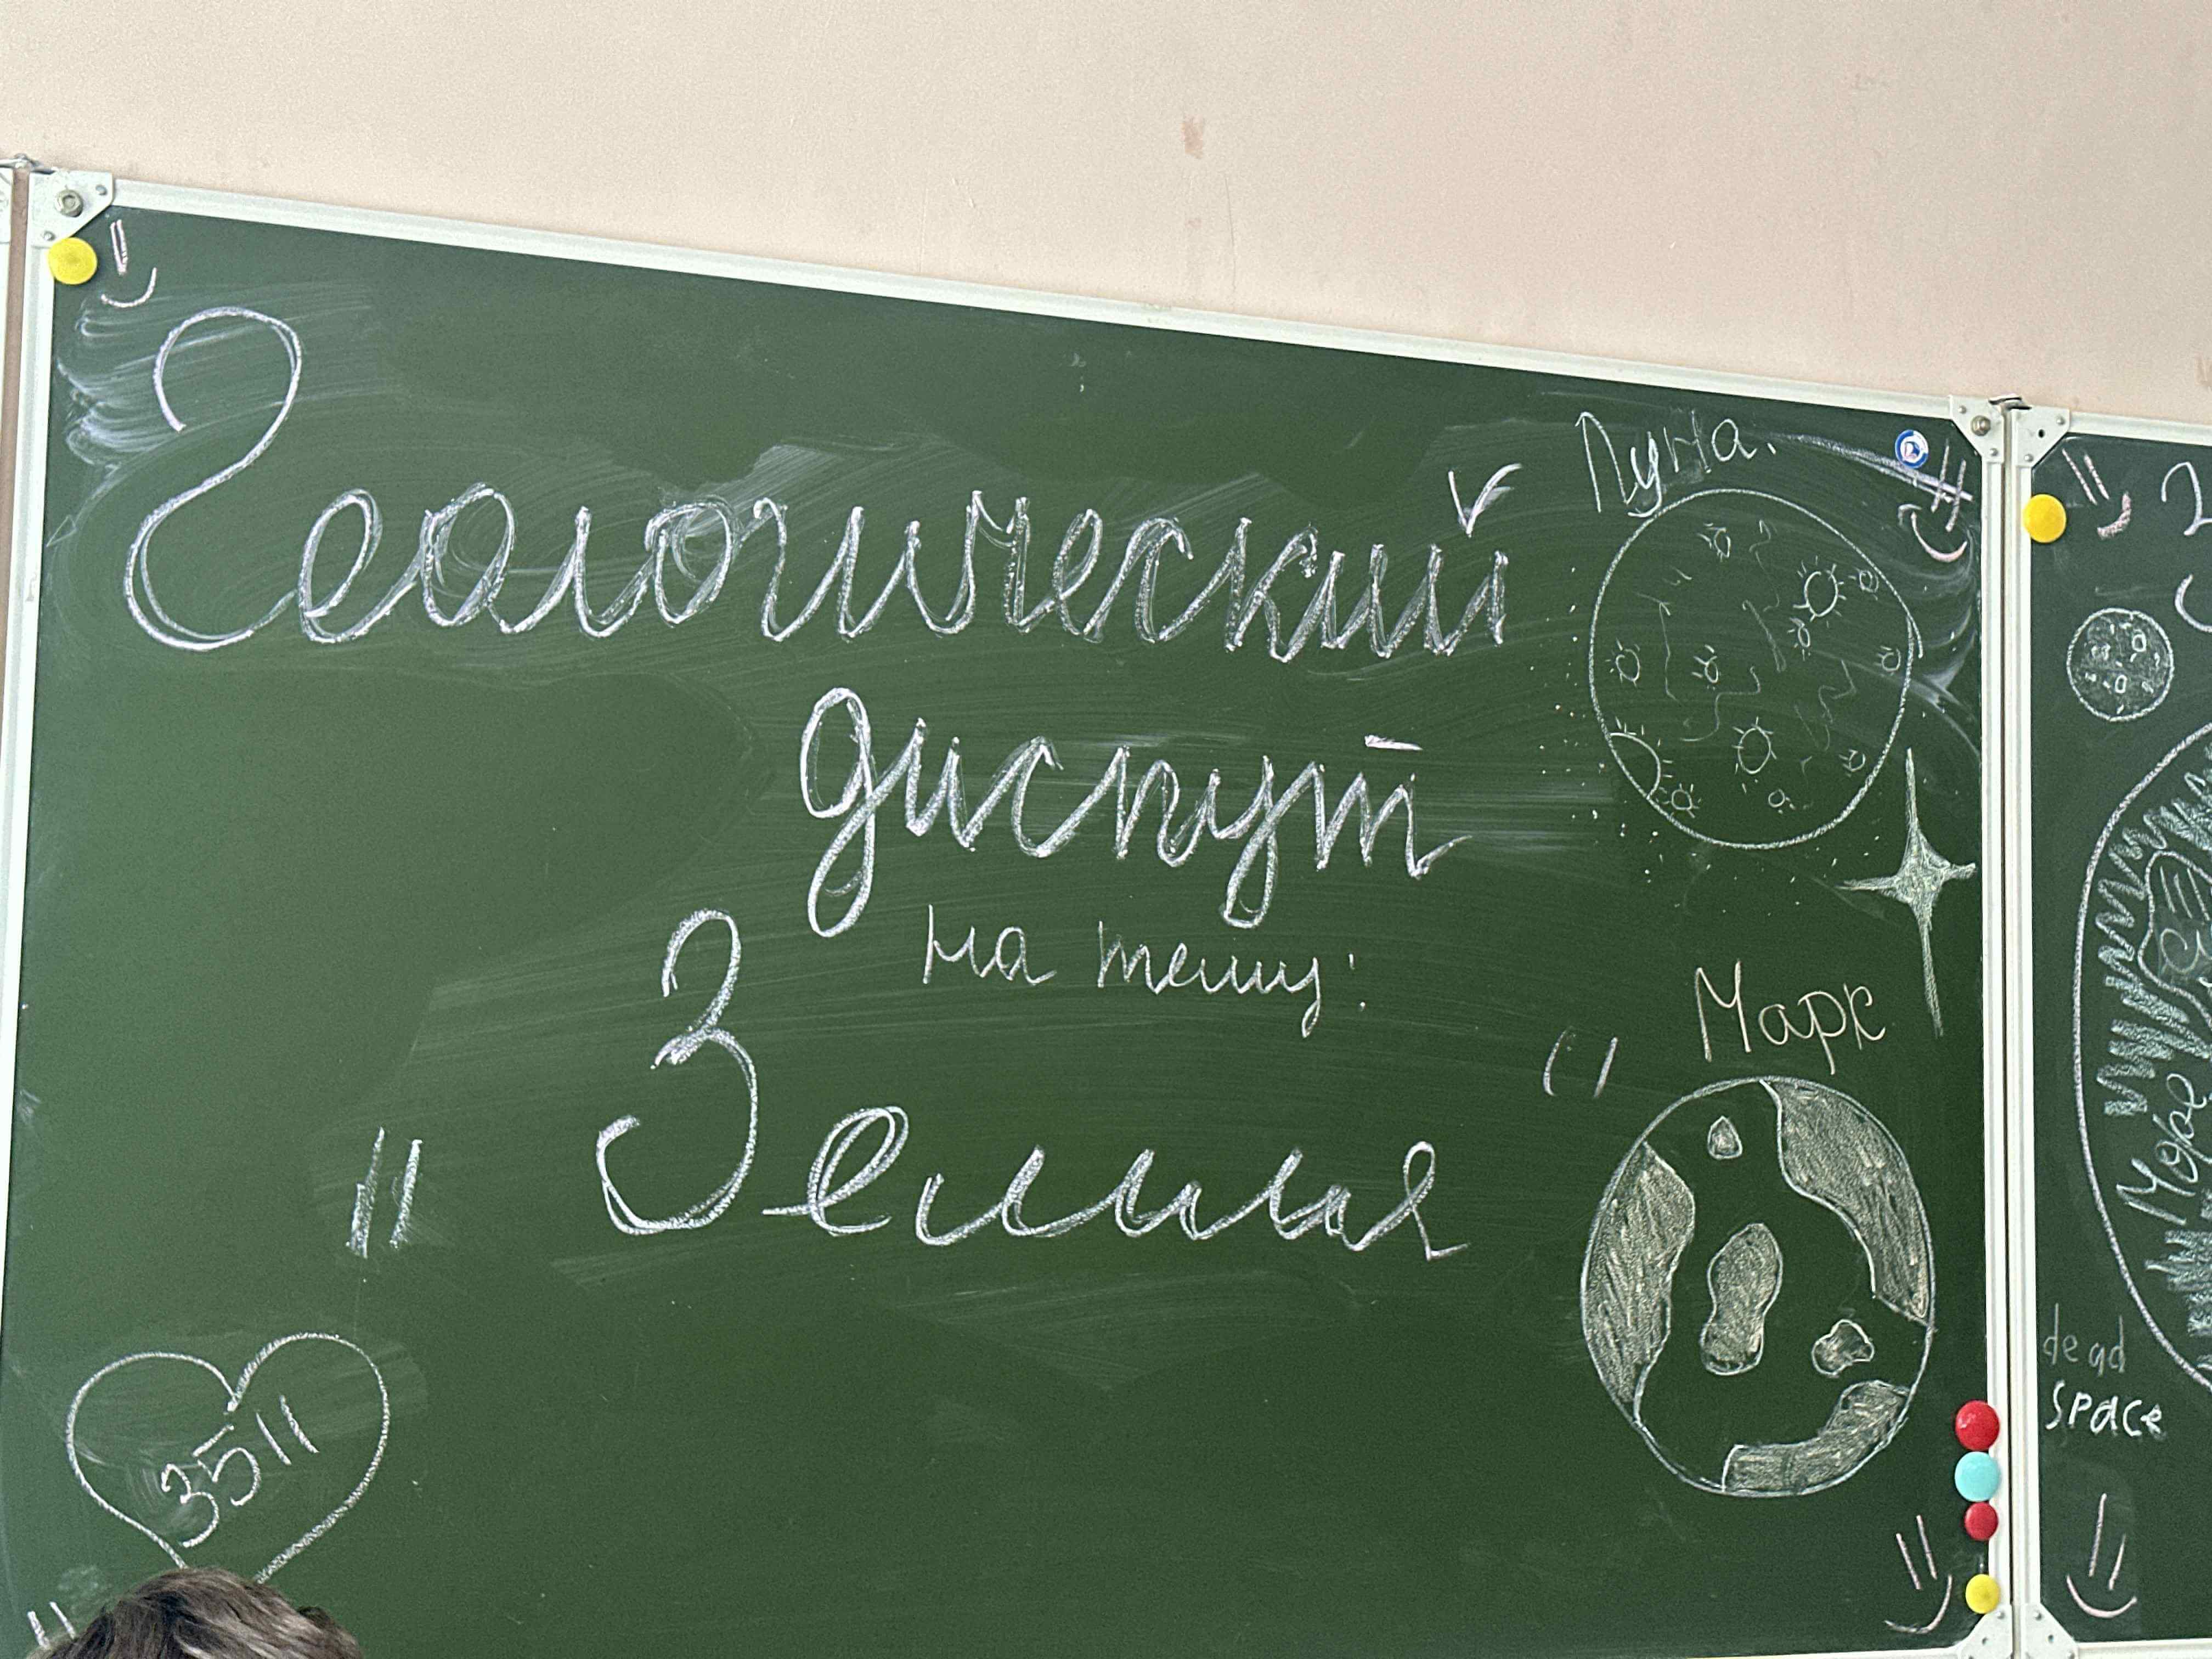 Геологический
диспут
на тему:
" Земля "
Луна.
Марк
3511
Море
dead
space